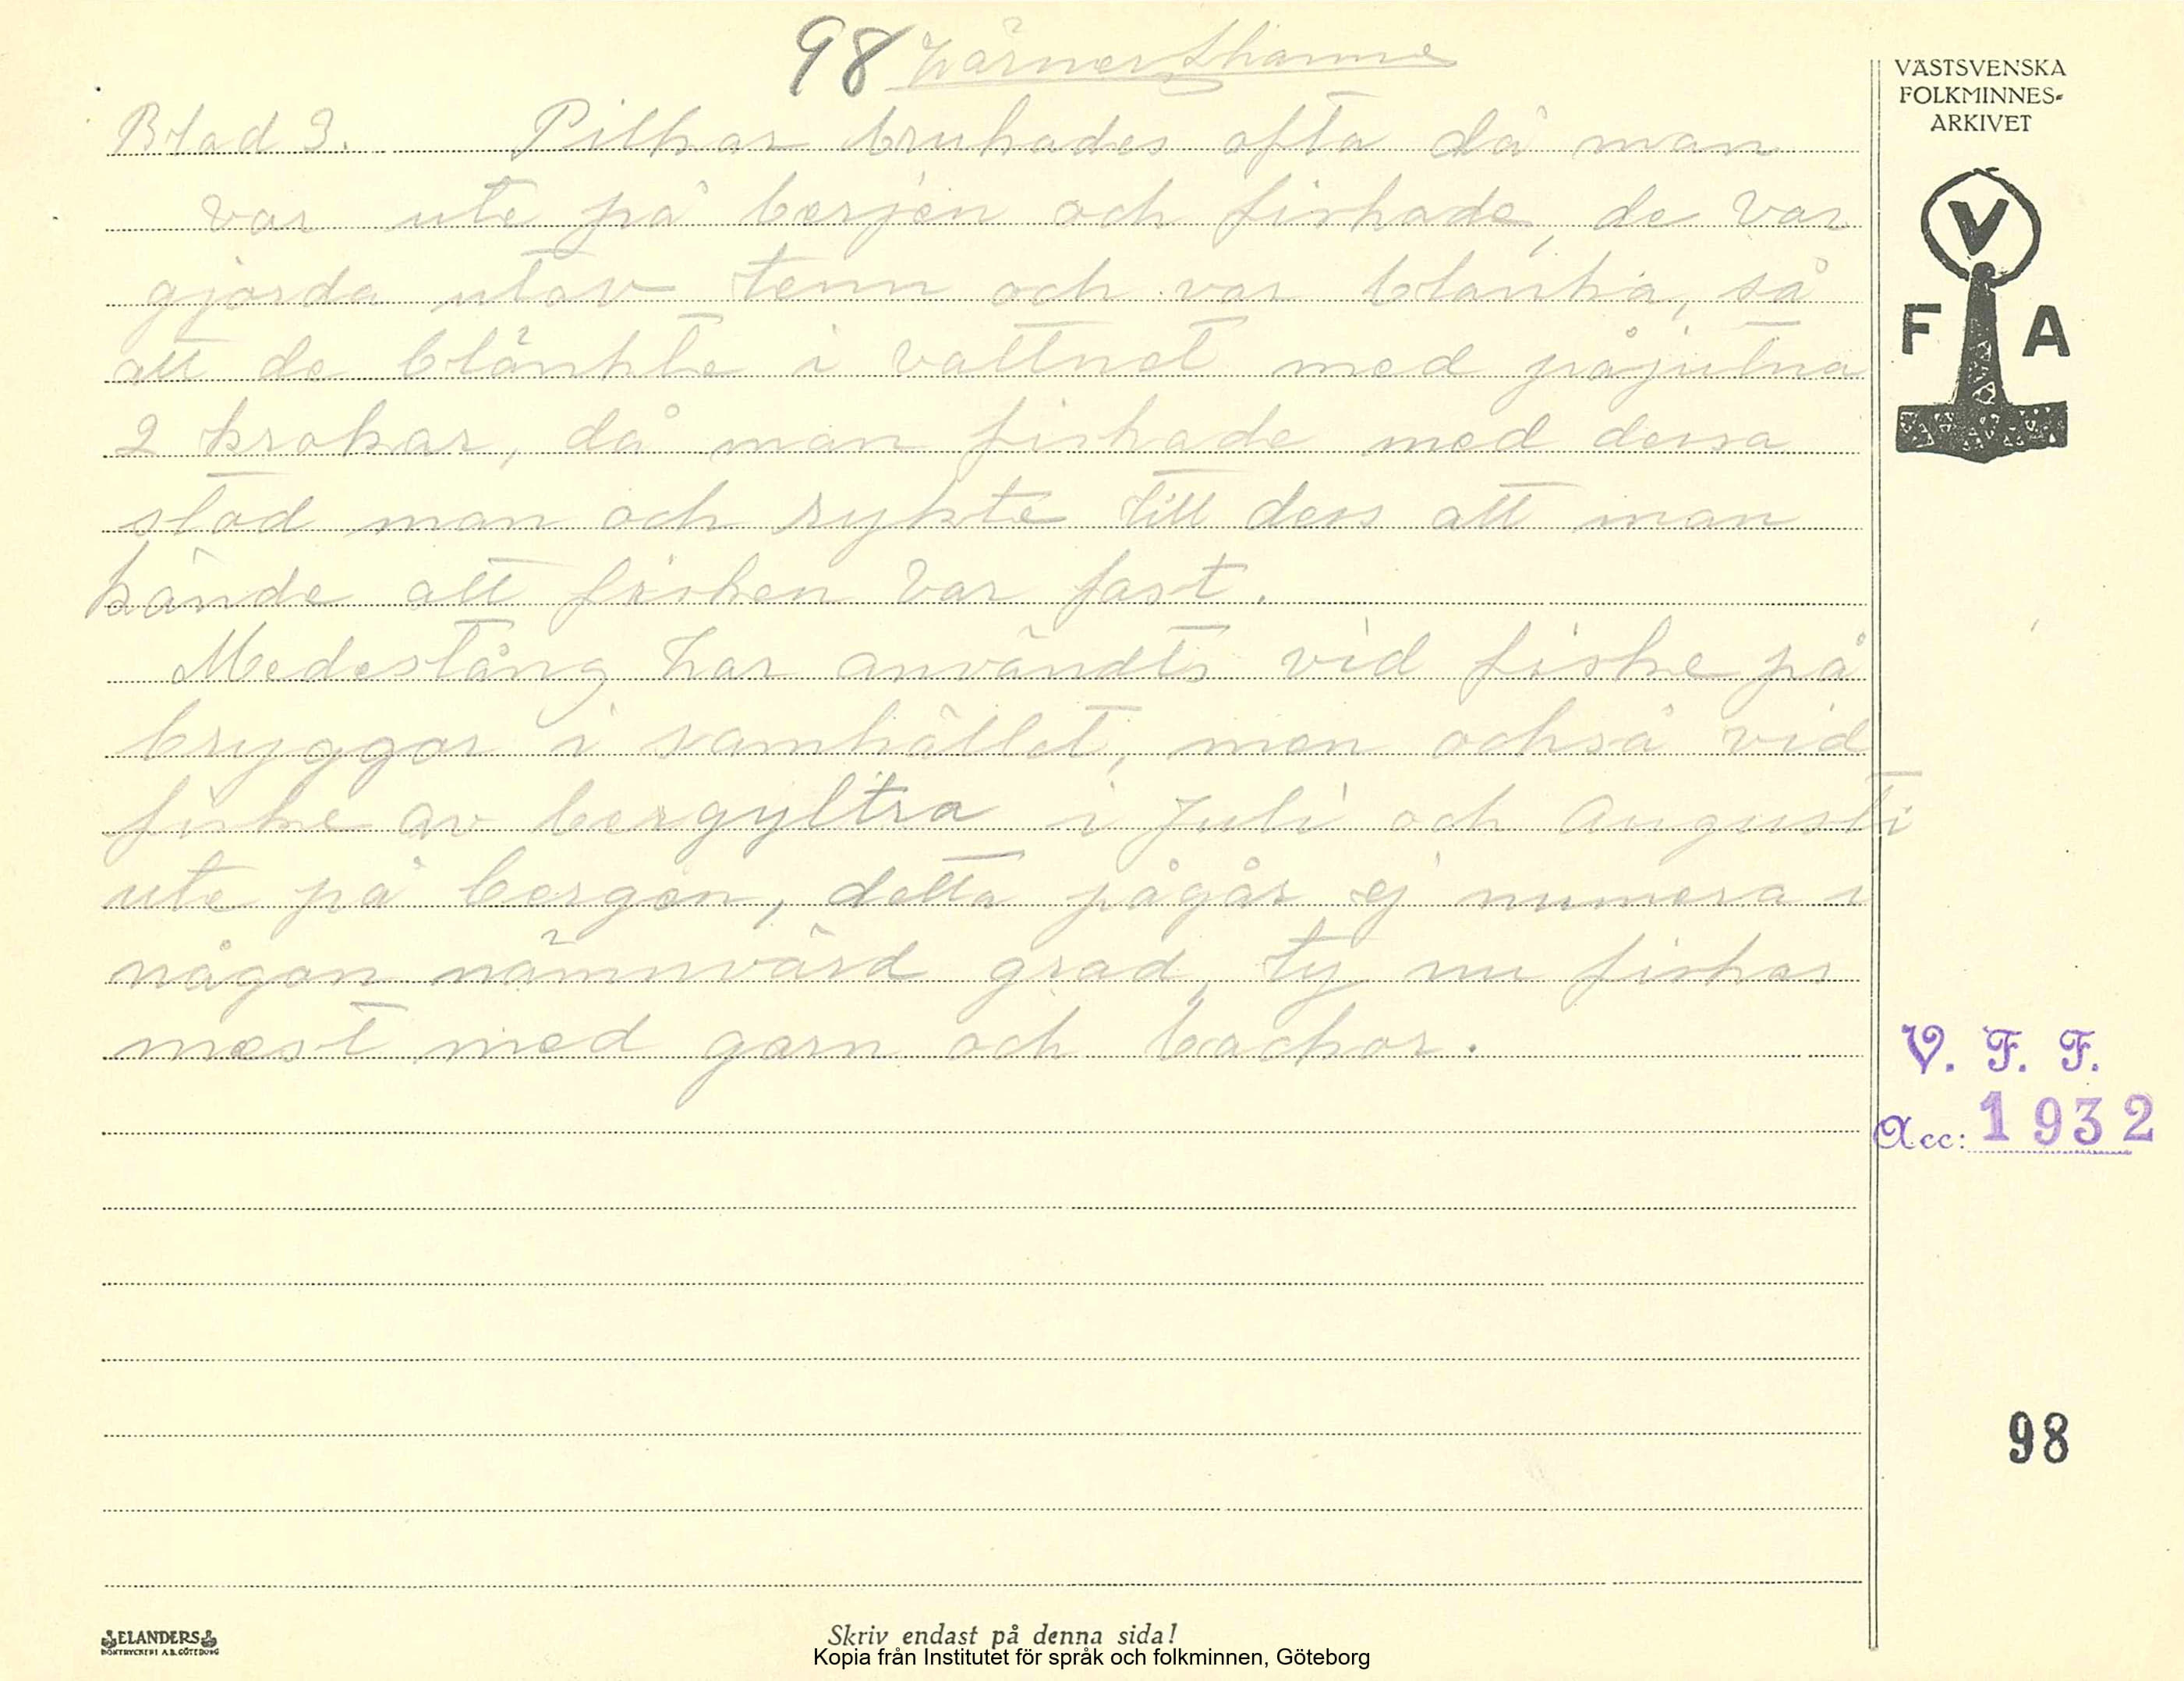 98 Wärner Shanne
VÄSTSVENSKA
FOLKMINNES-
ARKIVET
V
F A
Blad 3. Pilkar brukades ofta då man
var ute på berjen och fiskade, de var
gjorda utav tenn och var blanka, så
att de blänkte i vattnet med påjutna
2 krokar, då man fiskade med dessa
stod man och rykte till dess att man
kände att fisken var fast.
Medestång har användts vid fiske på
bryggor i samhället, men också vid
fiske av bergyltra i Juli och Augusti
ute på bergen, detta pågår ej numera i
någon nämnvärd grad, ty nu fiskas
mest med garn och backor.
V. F. F.
Acc: 1932
98
ELANDERS
BOKTRYCKERI A.B. GÖTEBORG
Skriv endast på denna sida!
Kopia från Institutet för språk och folkminnen, Göteborg